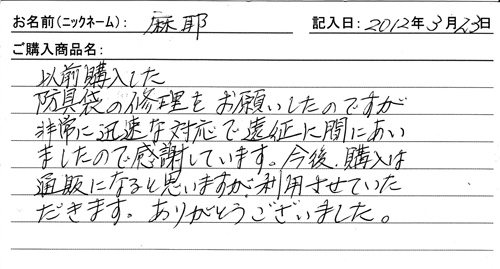 お名前(ニックネーム): 麻耶 記入日: 2012年3月23日
ご購入商品名:
以前購入した
防具袋の修理をお願いしたのですが
非常に迅速な対応で遠征に間にあい
ましたので感謝しています。今後、購入は
通販になると思いますが、利用させていた
だきます。ありがとうございました。